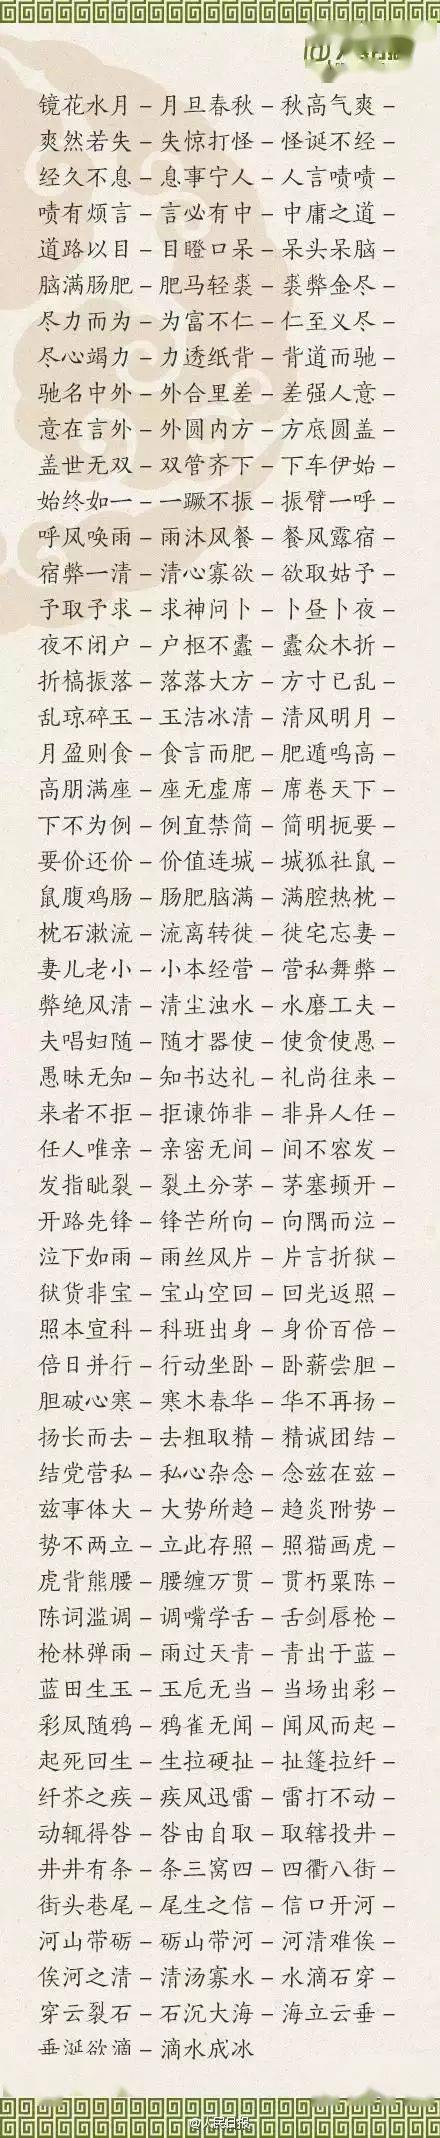 镜花水月–月旦春秋–秋高气爽–
爽然若失–失惊打怪–怪诞不经–
经久不息–息事宁人–人言啧啧–
啧有烦言–言必有中–中庸之道–
道路以目–目瞪口呆–呆头呆脑–
脑满肠肥–肥马轻裘–裘弊金尽–
尽力而为–为富不仁–仁至义尽–
尽心竭力–力透纸背–背道而驰–
驰名中外–外合里差–差强人意–
意在言外–外圆内方–方底圆盖–
盖世无双–双管齐下–下车伊始–
始终如一–一蹶不振–振臂一呼–
呼风唤雨–雨沐风餐–餐风露宿–
宿弊一清–清心寡欲–欲取姑予–
予取予求–求神问卜–卜昼卜夜–
夜不闭户–户枢不蠹–蠹众木折–
折槁振落–落落大方–方寸已乱–
乱琼碎玉–玉洁冰清–清风明月–
月盈则食–食言而肥–肥遁鸣高–
高朋满座–座无虚席–席卷天下–
下不为例–例直禁简–简明扼要–
要价还价–价值连城–城狐社鼠–
鼠腹鸡肠–肠肥脑满–满腔热枕–
枕石漱流–流离转徙–徙宅忘妻–
妻儿老小–小本经营–营私舞弊–
弊绝风清–清尘浊水–水磨工夫–
夫唱妇随–随才器使–使贪使愚–
愚昧无知–知书达礼–礼尚往来–
来者不拒–拒谏饰非–非异人任–
任人唯亲–亲密无间–间不容发–
发指眦裂–裂土分茅–茅塞顿开–
开路先锋–锋芒所向–向隅而泣–
泣下如雨–雨丝风片–片言折狱–
狱货非宝–宝山空回–回光返照–
照本宣科–科班出身–身价百倍–
倍日并行–行动坐卧–卧薪尝胆–
胆破心寒–寒木春华–华不再扬–
扬长而去–去粗取精–精诚团结–
结党营私–私心杂念–念兹在兹–
兹事体大–大势所趋–趋炎附势–
势不两立–立此存照–照猫画虎–
虎背熊腰–腰缠万贯–贯朽粟陈–
陈词滥调–调嘴学舌–舌剑唇枪–
枪林弹雨–雨过天青–青出于蓝–
蓝田生玉–玉卮无当–当场出彩–
彩凤随鸦–鸦雀无闻–闻风而起–
起死回生–生拉硬扯–扯篷拉纤–
纤芥之疾–疾风迅雷–雷打不动–
动辄得咎–咎由自取–取辖投井–
井井有条–条三窝四–四衢八街–
街头巷尾–尾生之信–信口开河–
河山带砺–砺山带河–河清难俟–
俟河之清–清汤寡水–水滴石穿–
穿云裂石–石沉大海–海立云垂–
垂涎欲滴–滴水成冰
@人民日报